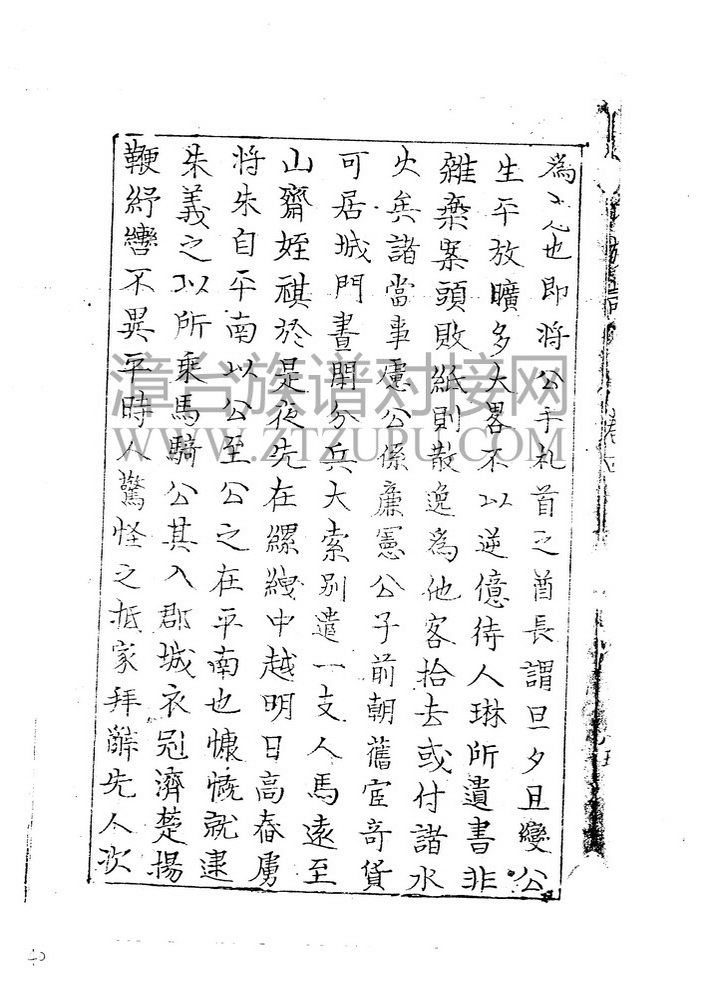 為也即將公手札首之酋長謂旦夕且變公
生平放曠多大畧不以逆億待人琳所遺書非
雜棄案頭敗紙則散逸為他客拾去或付諸水
火矣諸當事慮公係廉憲公子前朝舊宦奇貨
可居城門晝閉分兵大索別遣一支人馬遠至
山齋姪祺於是夜先在縲絏中越明日高舂虜
將朱自平南以公至公之在平南也慷慨就逮
朱義之以所乘馬騎公其入郡城衣冠濟楚揚
鞭紓轡不異平時人驚怪之抵家拜辭先人次
漳台族谱对接网
WWW.ZTZUPU.COM